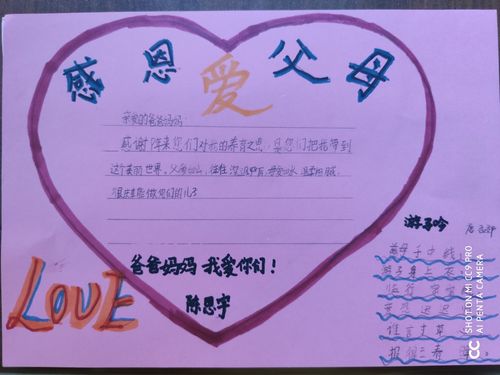 感恩 爱 父母
亲爱的爸爸妈妈:
感谢年来您们对我的养育之恩,是您们把我带到
这个美丽世界。父爱如山,
很庆幸能做您们的儿子
爸爸妈妈 我爱你们!
陈思宇
LOVE
游子吟
慈母手中线,
游子身上衣
临行密密
意恐迟迟
谁言寸草
报得三春
SHOT ON MI CC9 PRO
AI PENTA CAMERA